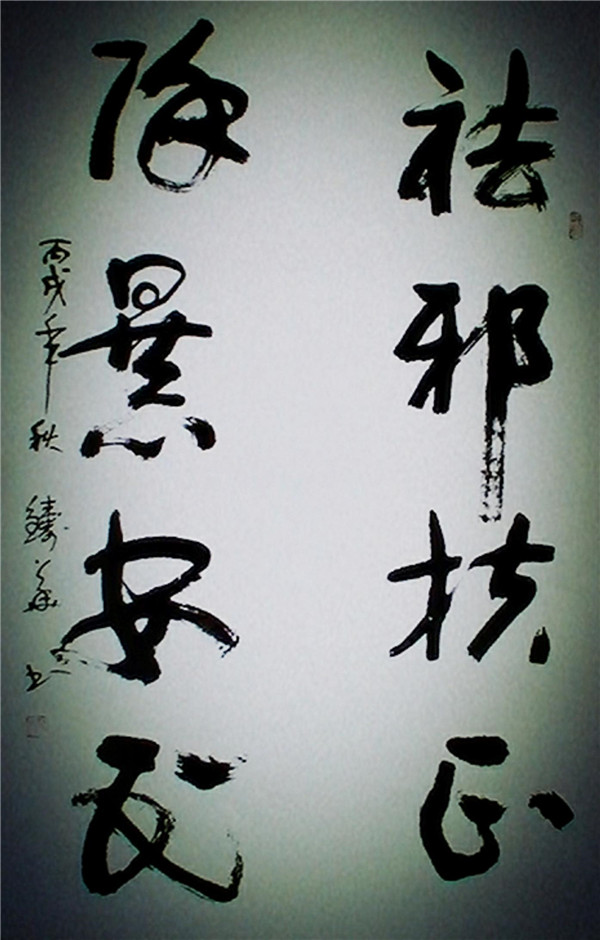 祛邪扶正
除暴安民
丙戌年秋 鑄 书